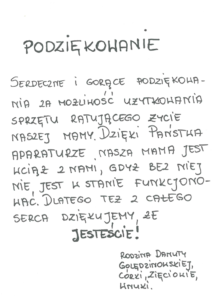 PODZIĘKOWANIE
SERDECZNE I GORĄCE PODZIĘKOWA-
NIA ZA MOŻLIWOŚĆ UŻYTKOWANIA
SPRZĘTU RATUJĄCEGO ŻYCIE
NASZEJ MAMY. DZIĘKI PAŃSTWA
APARATURZE NASZA MAMA JEST
WCIĄŻ Z NAMI, GDYŻ BEZ NIEJ
NIE JEST W STANIE FUNKCJONO-
WAĆ. DLATEGO TEŻ Z CAŁEGO
SERCA DZIĘKUJEMY, ŻE
JESTEŚCIE!
RODZINA DANUTY
GOLĘDZINOWSKIEJ,
CÓRKI, ZIĘCIOWIE,
WNUKI.